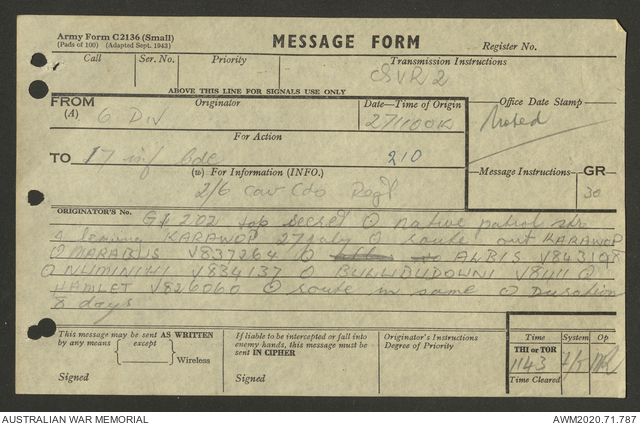 Army Form C2136 (Small)
(Pads of 100) (Adapted Sept. 1943)
MESSAGE FORM
Register No.
Call Ser. No. Priority Transmission Instructions
ABOVE THIS LINE FOR SIGNALS USE ONLY
FROM Originator Date—Time of Origin Office Date Stamp
(A) 6 Div 27/1100K Noted
For Action
TO 17 inf bde 210
Message Instructions GR
(W) For Information (INFO.) 30
2/6 Cav Cdo Regt
ORIGINATOR'S No.
G 202 top secret O native patrol
leaving KARAWOP 27 July O route out KARAWOP
O MARABUS V837264 O ALBIS
O NUMINIKI V834137 O
HAMLET V826060 O route in same O Duration
8 days
This message may be sent AS WRITTEN
by any means except
Wireless
Signed
If liable to be intercepted or fall into
enemy hands, this message must be
sent IN CIPHER
Signed
Originator's Instructions
Degree of Priority
Time System Op
THI or TOR
1143
Time Cleared
AUSTRALIAN WAR MEMORIAL AWM2020.71.787